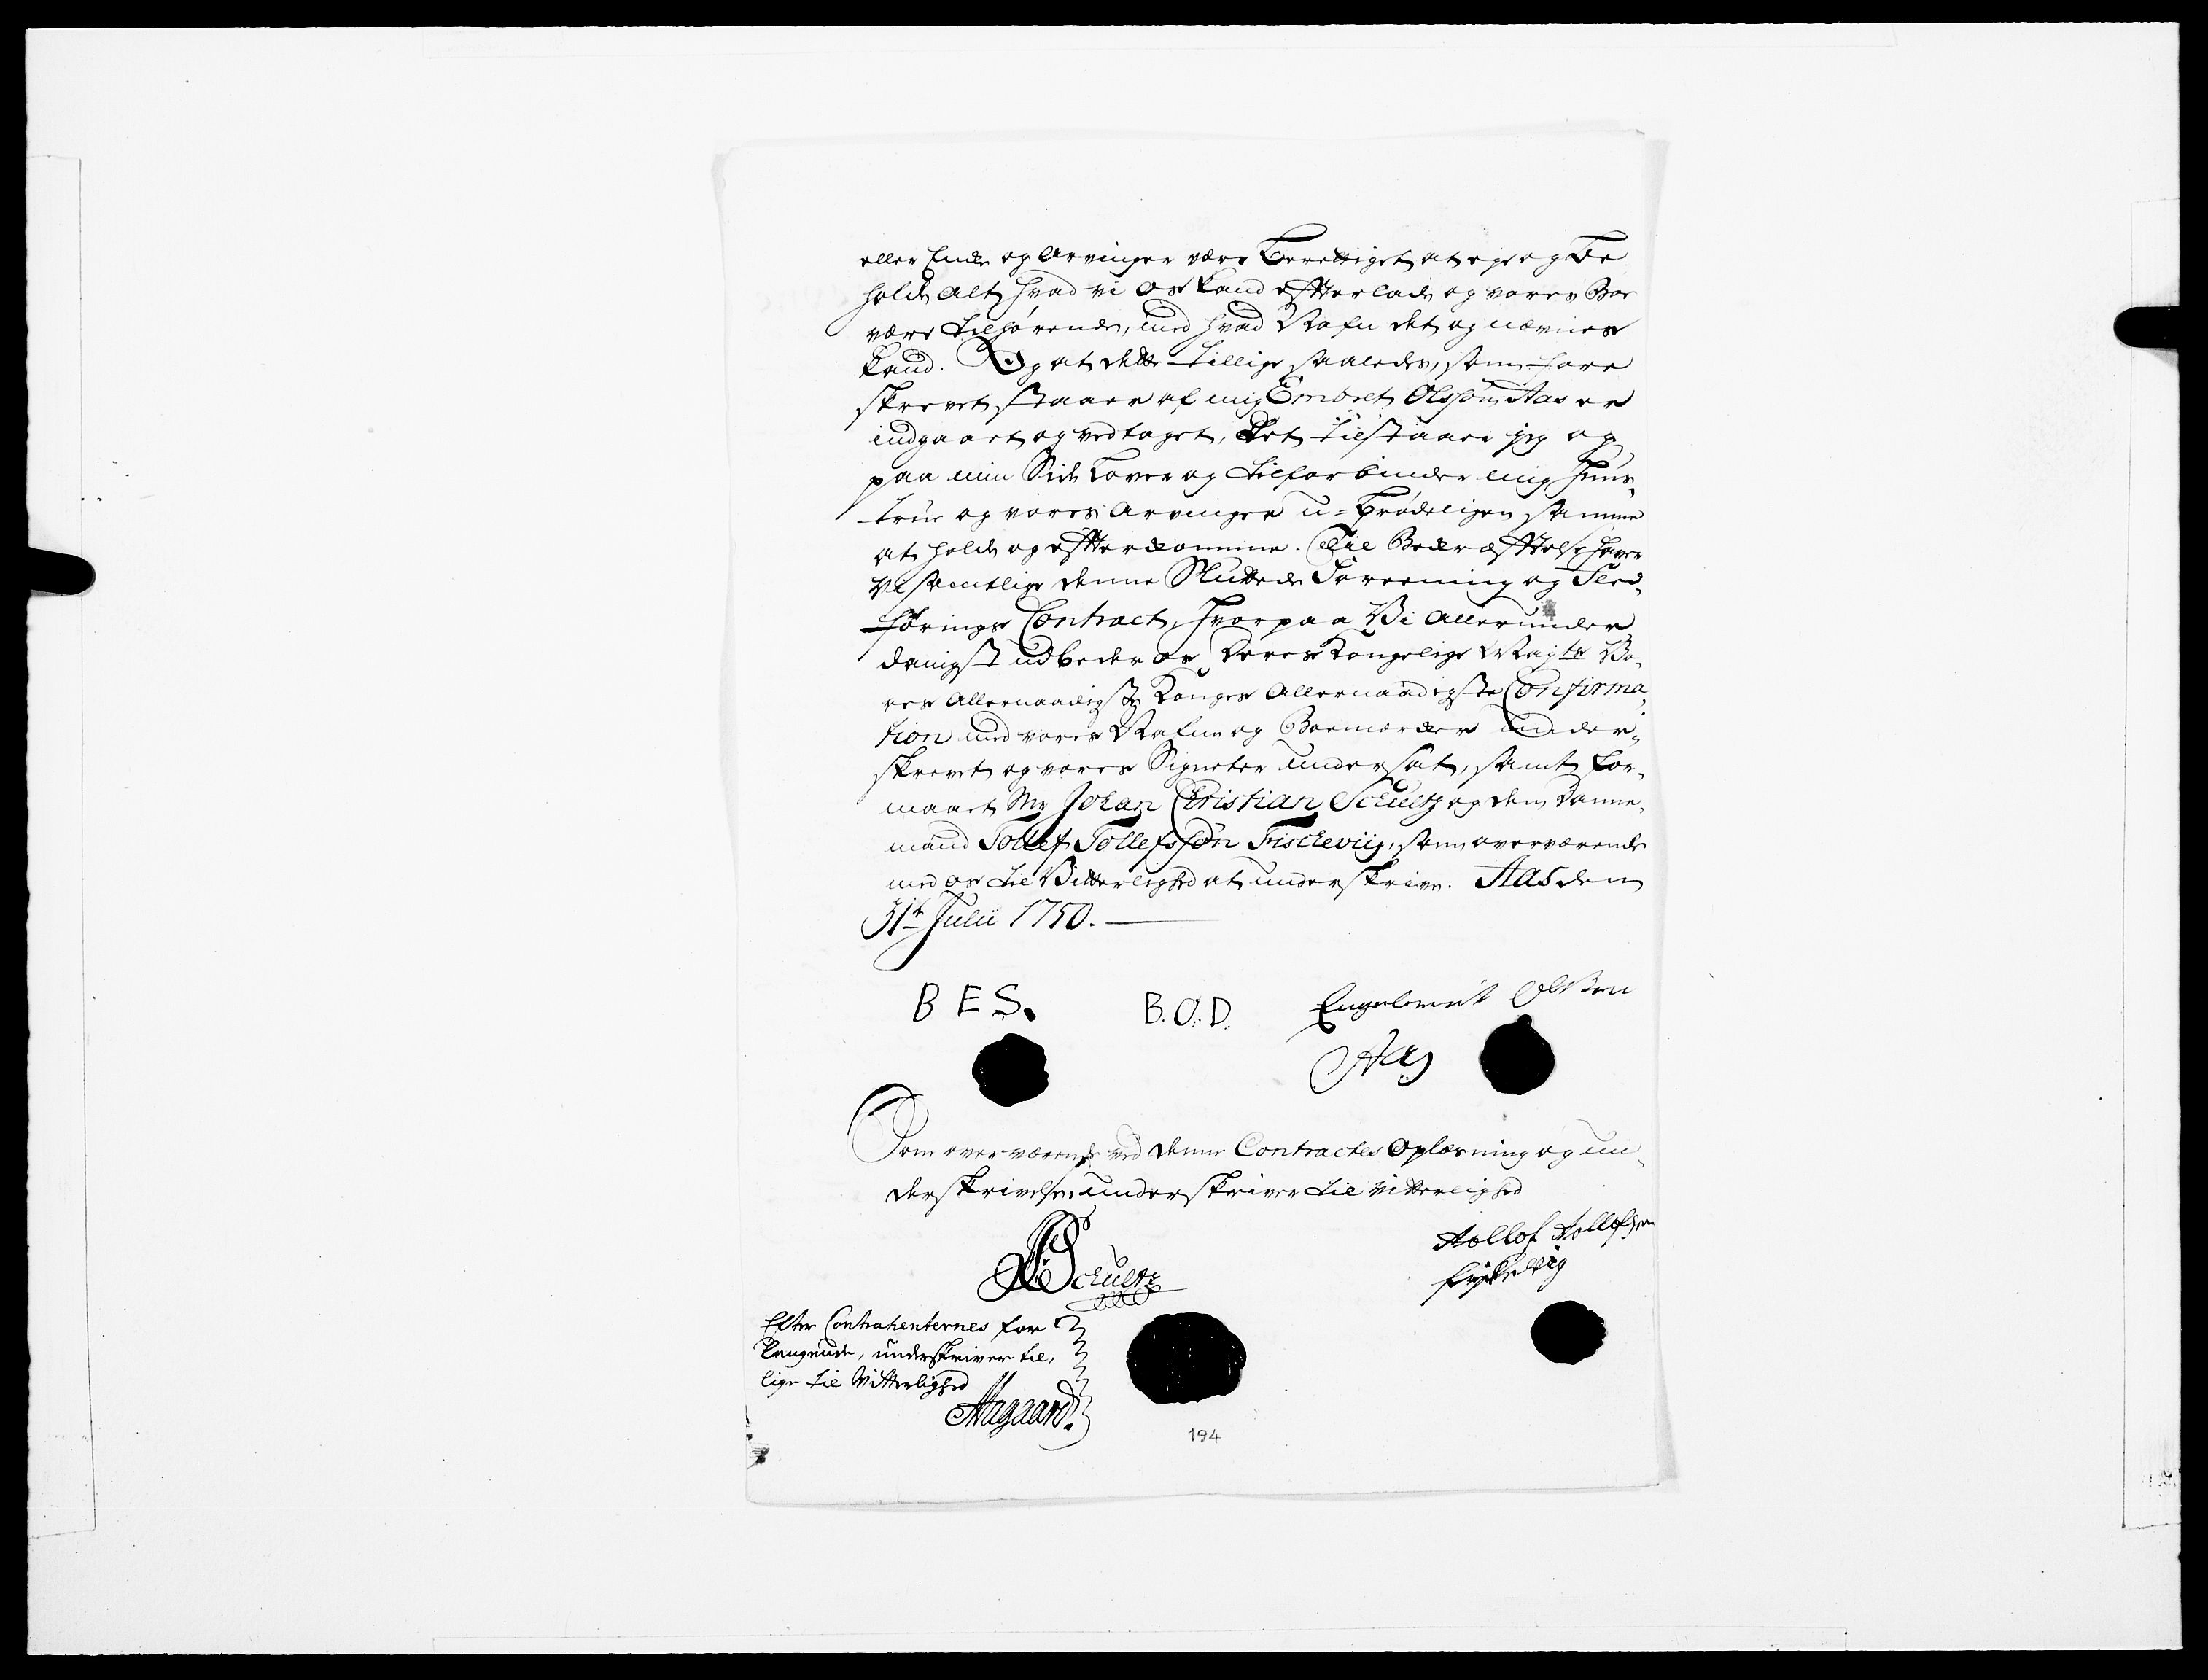 eller Enke og Arvinger være Berettiget at eje og Be
holde alt hvad vi os kand efterlade og vores Boe
være tilhørende, med hvad Nafn det og nævnes
kand. Og at dette tillige saaledes, som fore
skrevet staaer af mig Embret Olssøn Aas er
indgaaet og vedtaget, det tilstaaer jeg og
paa min Side Lover og tilforbinder mig Huus¬
true og vores Arvinger u-brødeligen samme
at holde og efterkomme. Til Bekræftelse haver
Vi samtlige denne Sluttede Foreening og Fled¬
førings Contract, hvorpaa Vi Allerunder
danigst udbeder os Deres Kongelige Mayts Vo¬
res Allernaadigste Konges Allernaadigste Confirma¬
tion med vores Nafne og Boemærker under¬
skrevet og vores Signeter undersat, samt for¬
maaet Mr Johan Christian Schultz og den Danne¬
mand Tollef Tollefssøn Fischeviig, som overværende
med os til Vitterlighed at underskrive. Aas den
31te Julii 1750.
B E S. B. O. D. Engebret Olsen
Aas
Som overværende ved denne Contractes Oplæsning og un¬
derskrivelse, underskriver til Vitterlighed
JC Schultz
Tollof Tollofsen
fiskevig
Efter Contrahenternes for
langende, underskriver til¬
lige til Vitterlighed
Aagaard.
194